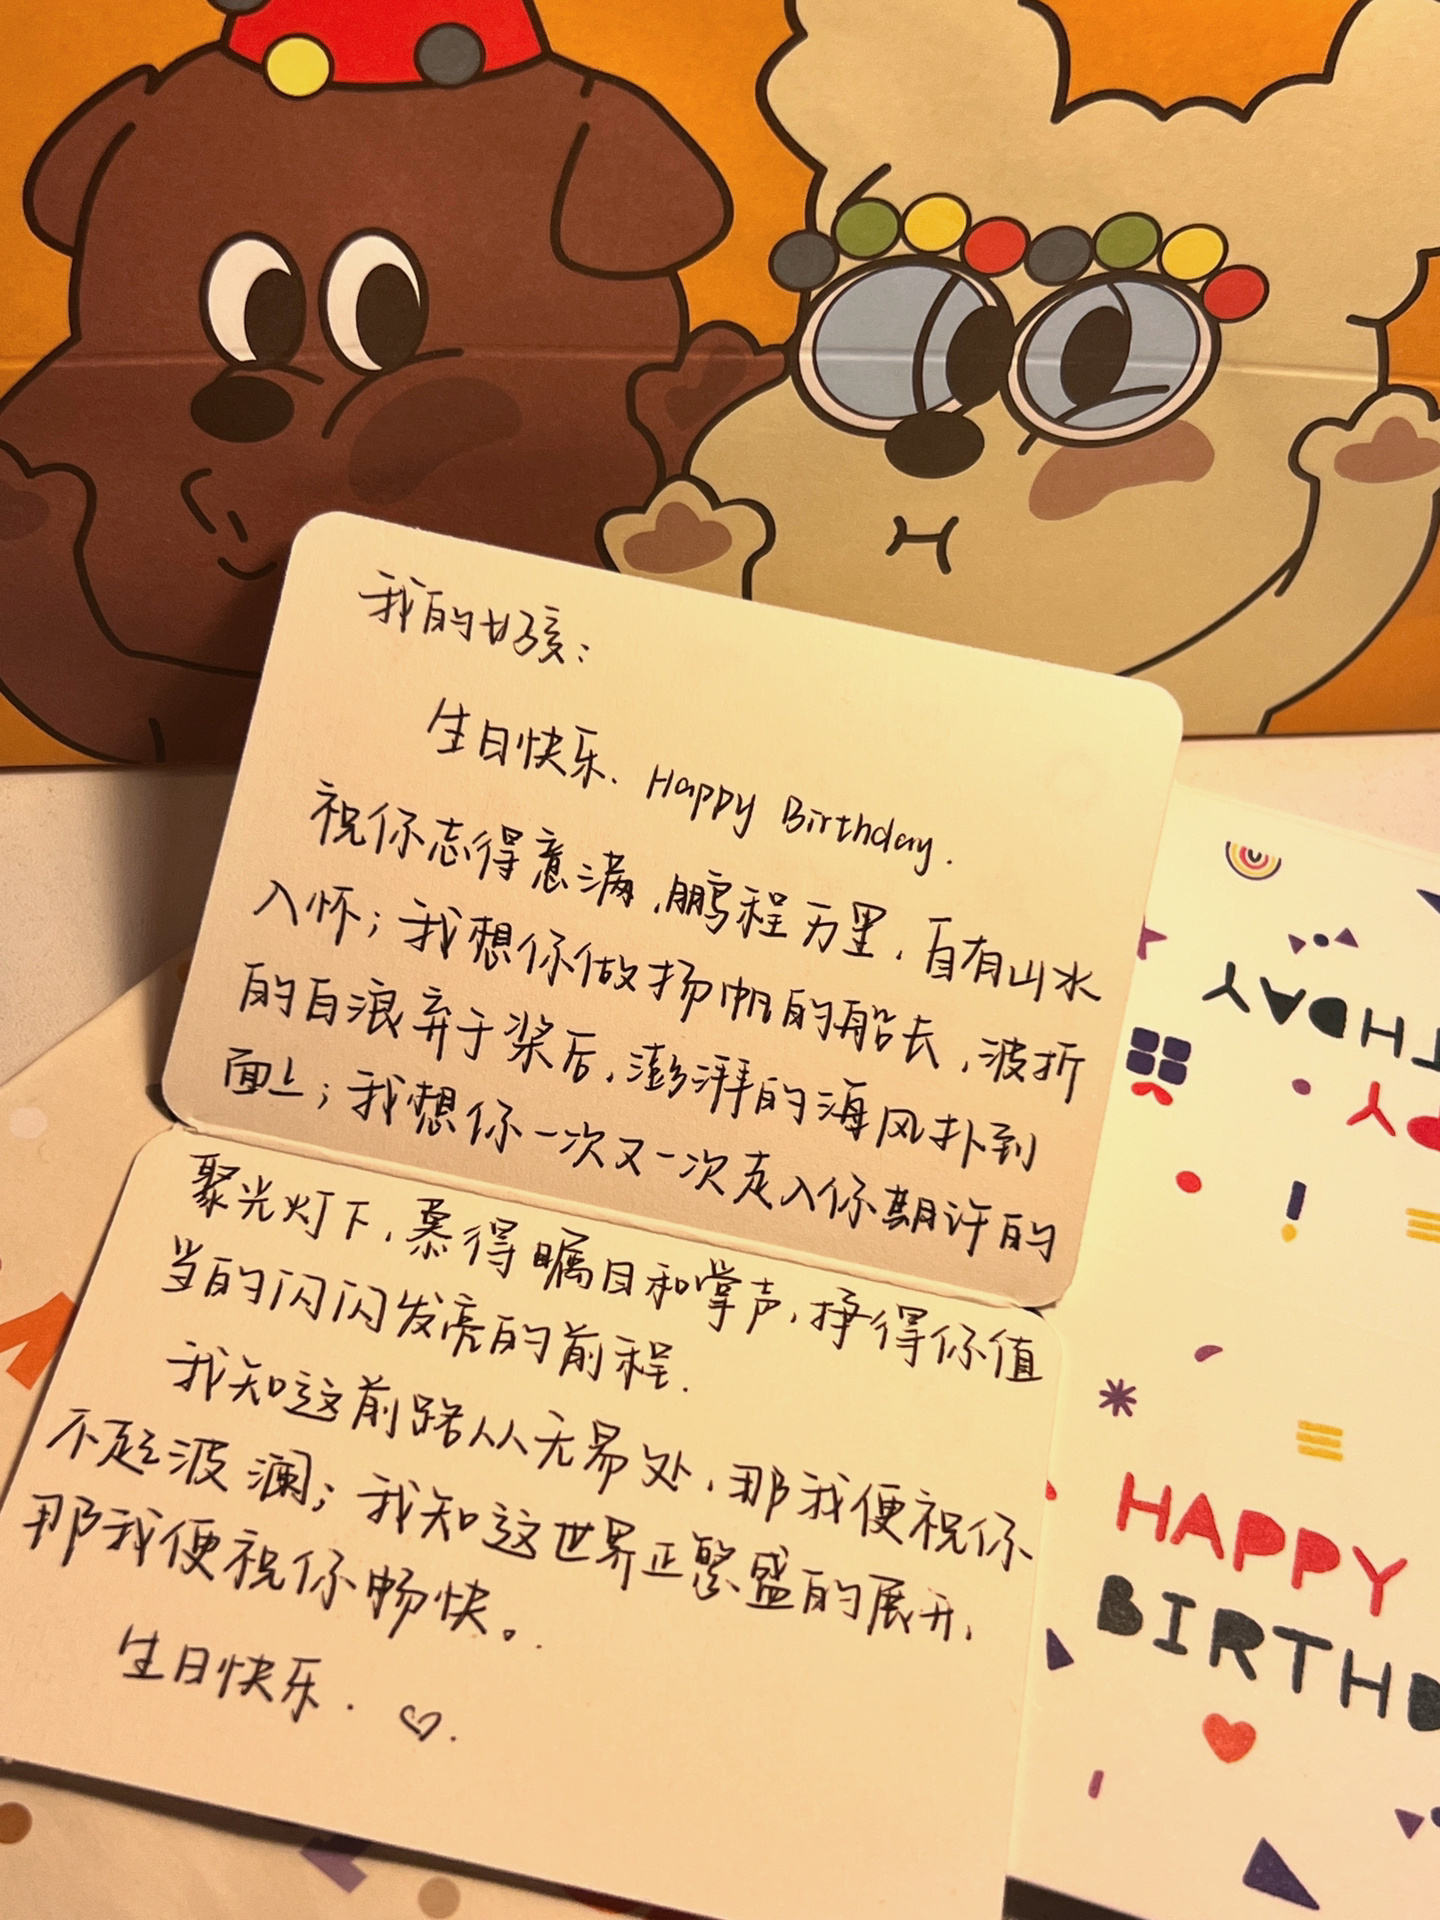 我的好孩:
生日快乐. Happy Birthday.
祝你志得意满,鹏程万里,自有山水
入怀;我想你做扬帆的船长,波折
的白浪弃于桨后,澎湃的海风扑到
面上;我想你一次又一次走入你期许的
聚光灯下,赢得瞩目和掌声,挣得你值
当的闪闪发亮的前程.
我知这前路从无易处,那我便祝你
不起波澜;我知这世界正繁盛的展开,
那我便祝你畅快。
生日快乐. ♡.
THDAY
PY
HAPPY
BIRTHD